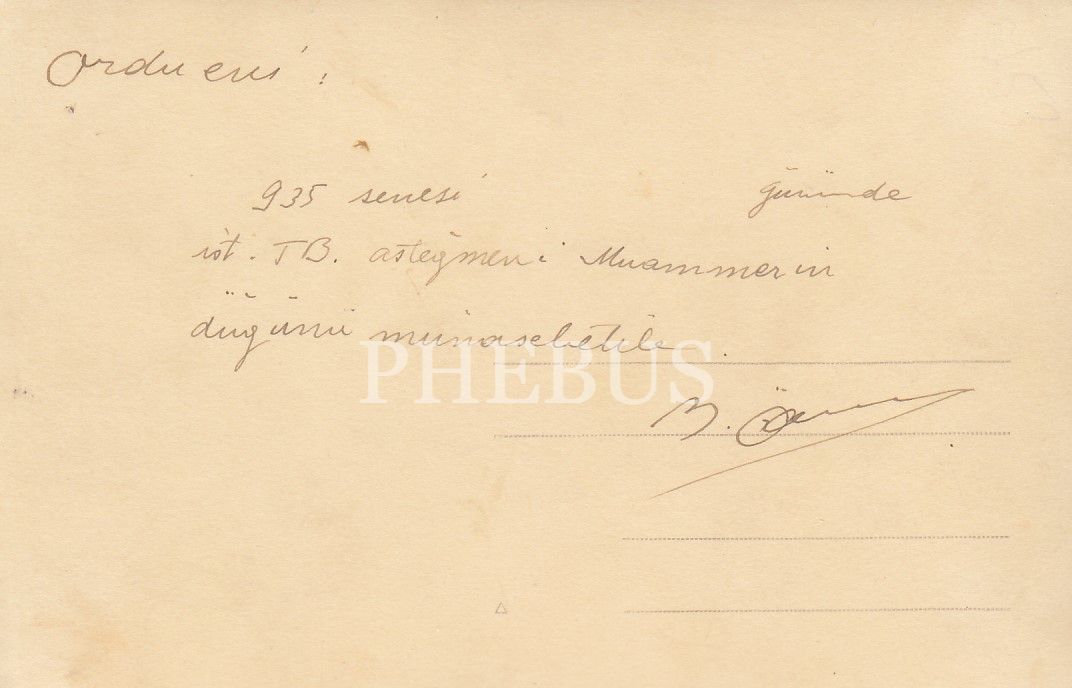 Ordu evi :
935 senesi gününde
ist. TB. asteğmeni Muammerin
düğünü münasebetile
PHEBUS